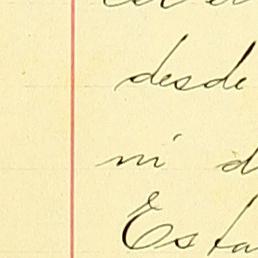 desde
ni d
Esta